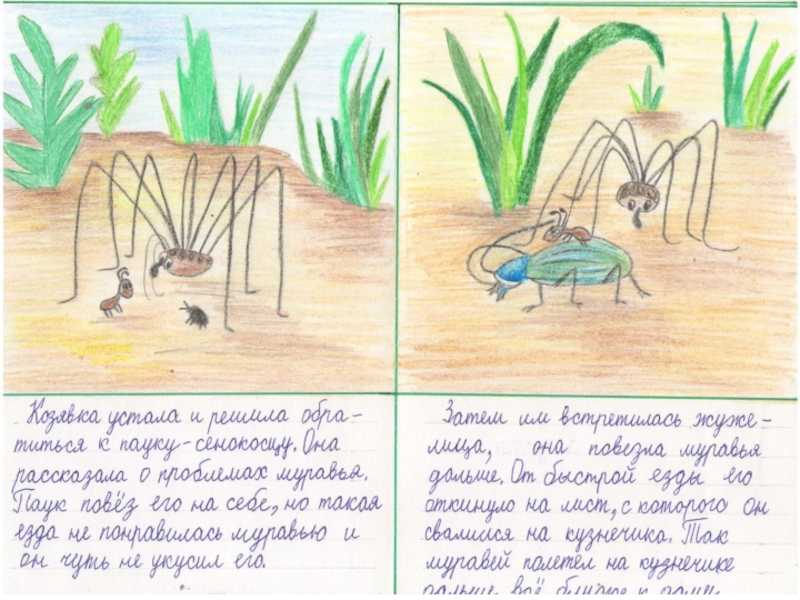 Козявка устала и решила обра-
титься к пауку-сенокосцу. Она
рассказала о проблемах муравья.
Паук повёз его на себе, но такая
езда не понравилась муравью и
он чуть не укусил его.
Затем им встретилась жуже-
лица, она повезла муравья
дальше. От быстрой езды его
откинуло на лист, с которого он
свалился на кузнечика. Так
муравей полетел на кузнечике
дальше всё ближе к дому.